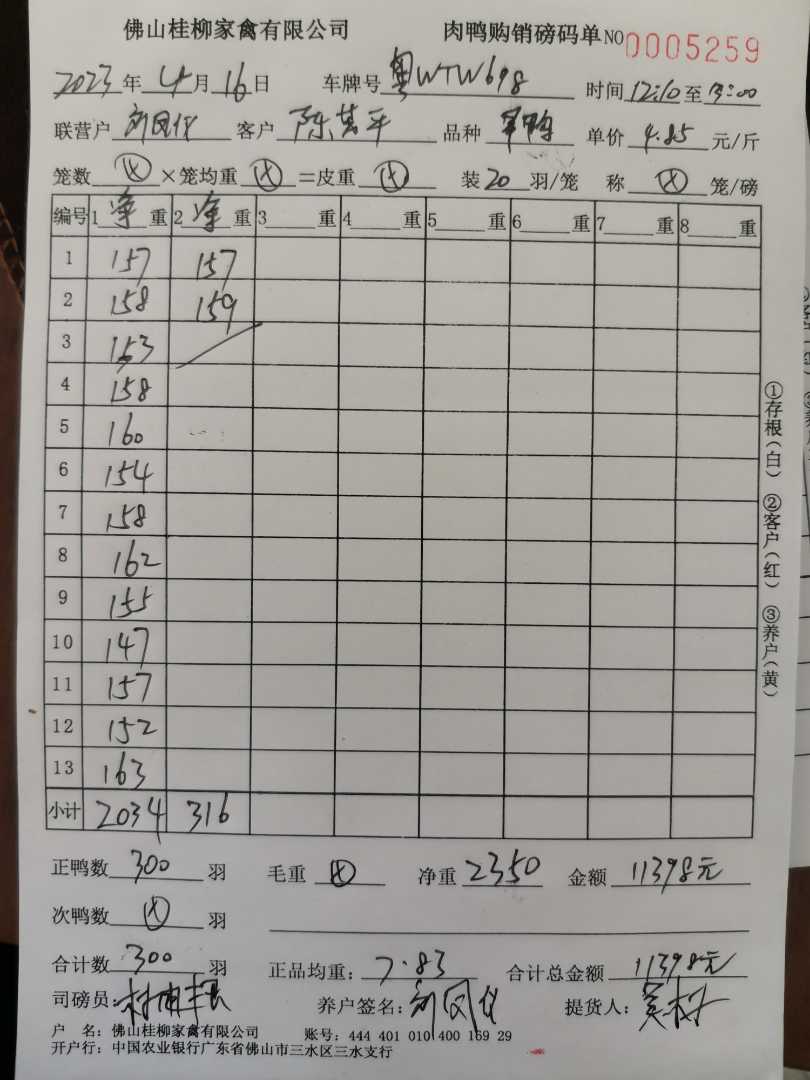 佛山桂柳家禽有限公司 肉鸭购销磅码单 NO 0005259
2023年4月16日 车牌号 粤WTW698 时间 12:10至13:00
联营户 刘凤仪 客户 品种 单价 4.85 元/斤
笼数 ×笼均重 =皮重 装 20 羽/笼 称 笼/磅
编号 1 净 重 2 净 重 3 重 4 重 5 重 6 重 7 重 8 重
1 157 157
2 158 159
3 153
4 158
5 160
6 154
7 158
8 162
9 155
10 147
11 157
12 152
13 163
小计 2034 316
正鸭数 300 羽 毛重 净重 2350 金额 11398元
次鸭数 羽
合计数 300 羽 正品均重: 7.83 合计总金额 11398元
司磅员: 养户签名: 刘凤仪 提货人:
户 名: 佛山桂柳家禽有限公司 账号: 444 401 010 400 169 29
开户行: 中国农业银行广东省佛山市三水区三水支行
①存根(白) ②客户(红) ③养户(黄)